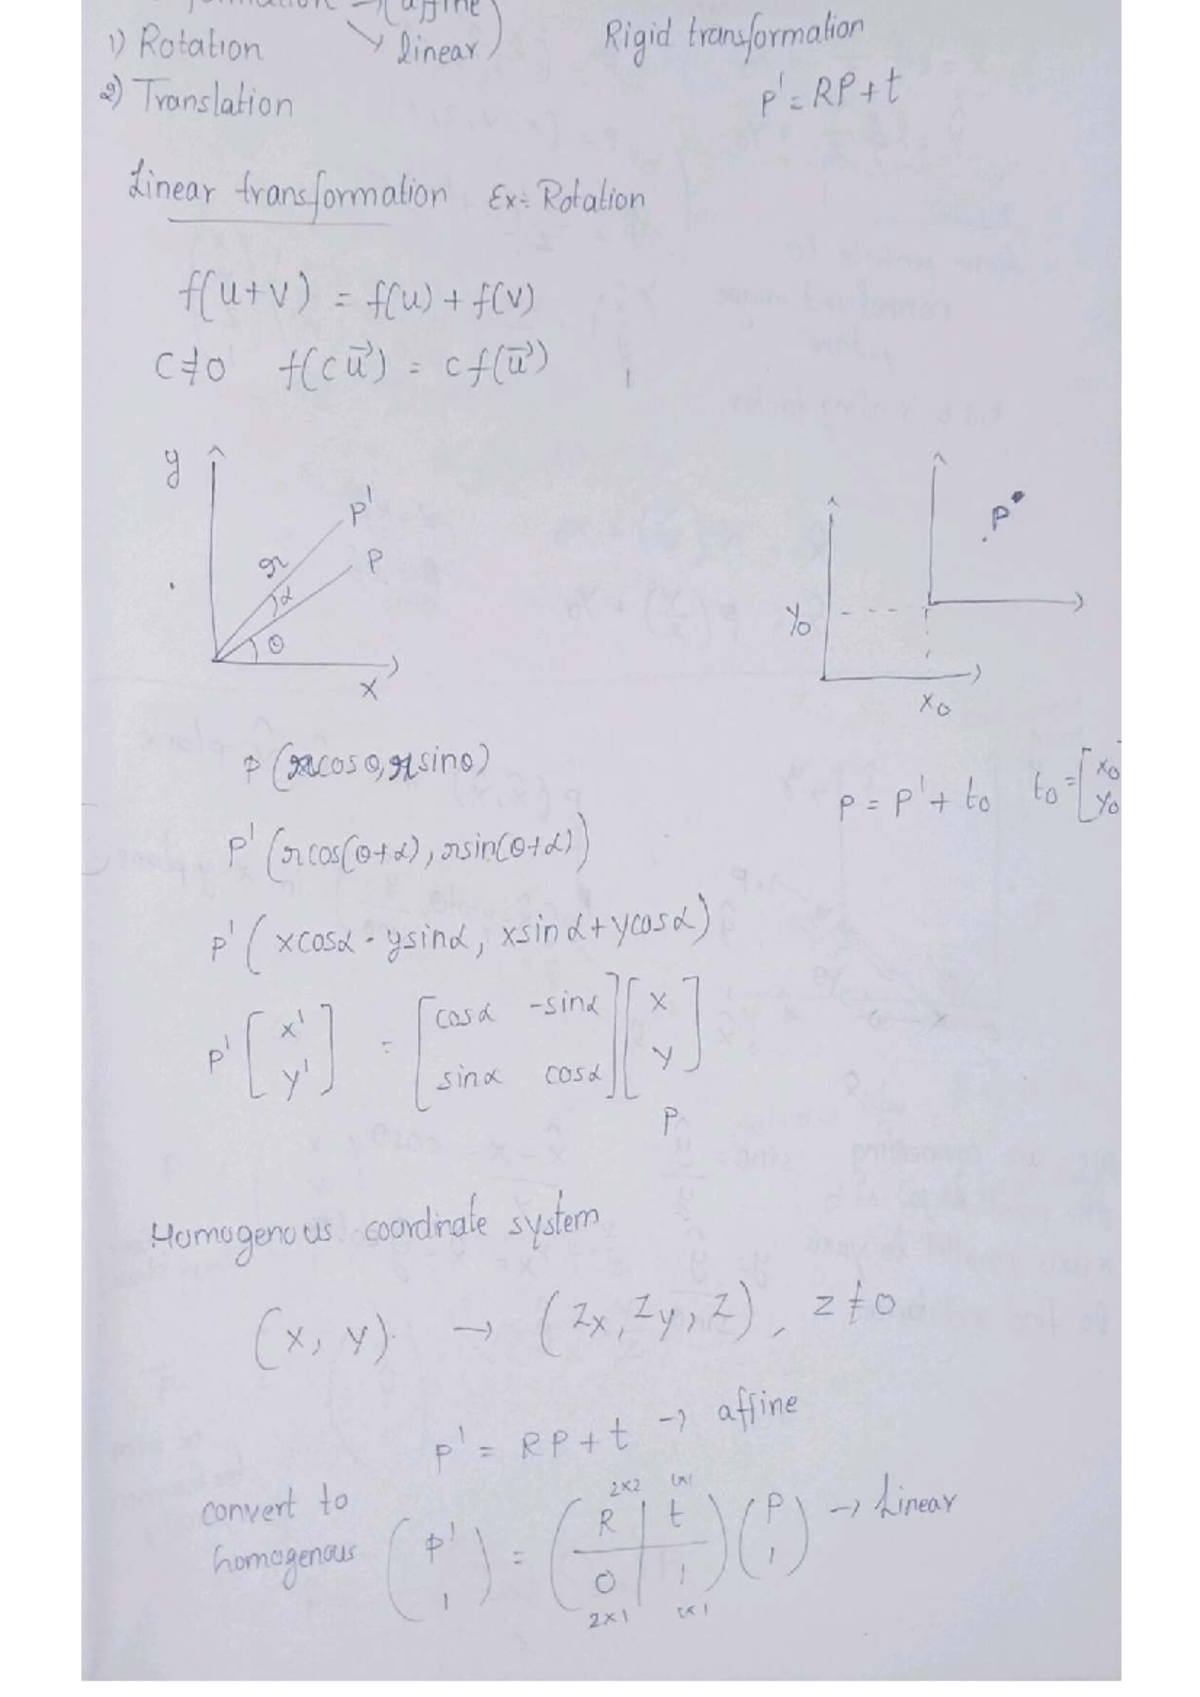 (affine
1) Rotation ↘ linear)
2) Translation
Rigid transformation
P' = RP + t
Linear transformation Ex:- Rotation
f(u+v) = f(u) + f(v)
C≠0 f(c u⃗) = c f(u⃗)
y
P'
r
P
α
θ
x
P
y₀
x₀
P (r cosθ, r sinθ)
P = P' + t₀ t₀ = [x₀
y₀
P' (r cos(θ+α), r sin(θ+α))
P' ( x cosα - y sinα, x sinα + y cosα)
P' [ x' ] = [ cosα -sinα ] [ x ]
[ y' ] [ sinα cosα ] [ y ]
P
Homogenous coordinate system
(x, y) → (zx, zy, z), z≠0
P' = RP + t → affine
convert to
homogenous
2x2
( P' ) = ( R | t ) ( P ) → Linear
( 1 ) ( 0 | 1 ) ( 1 )
2x1 1x1